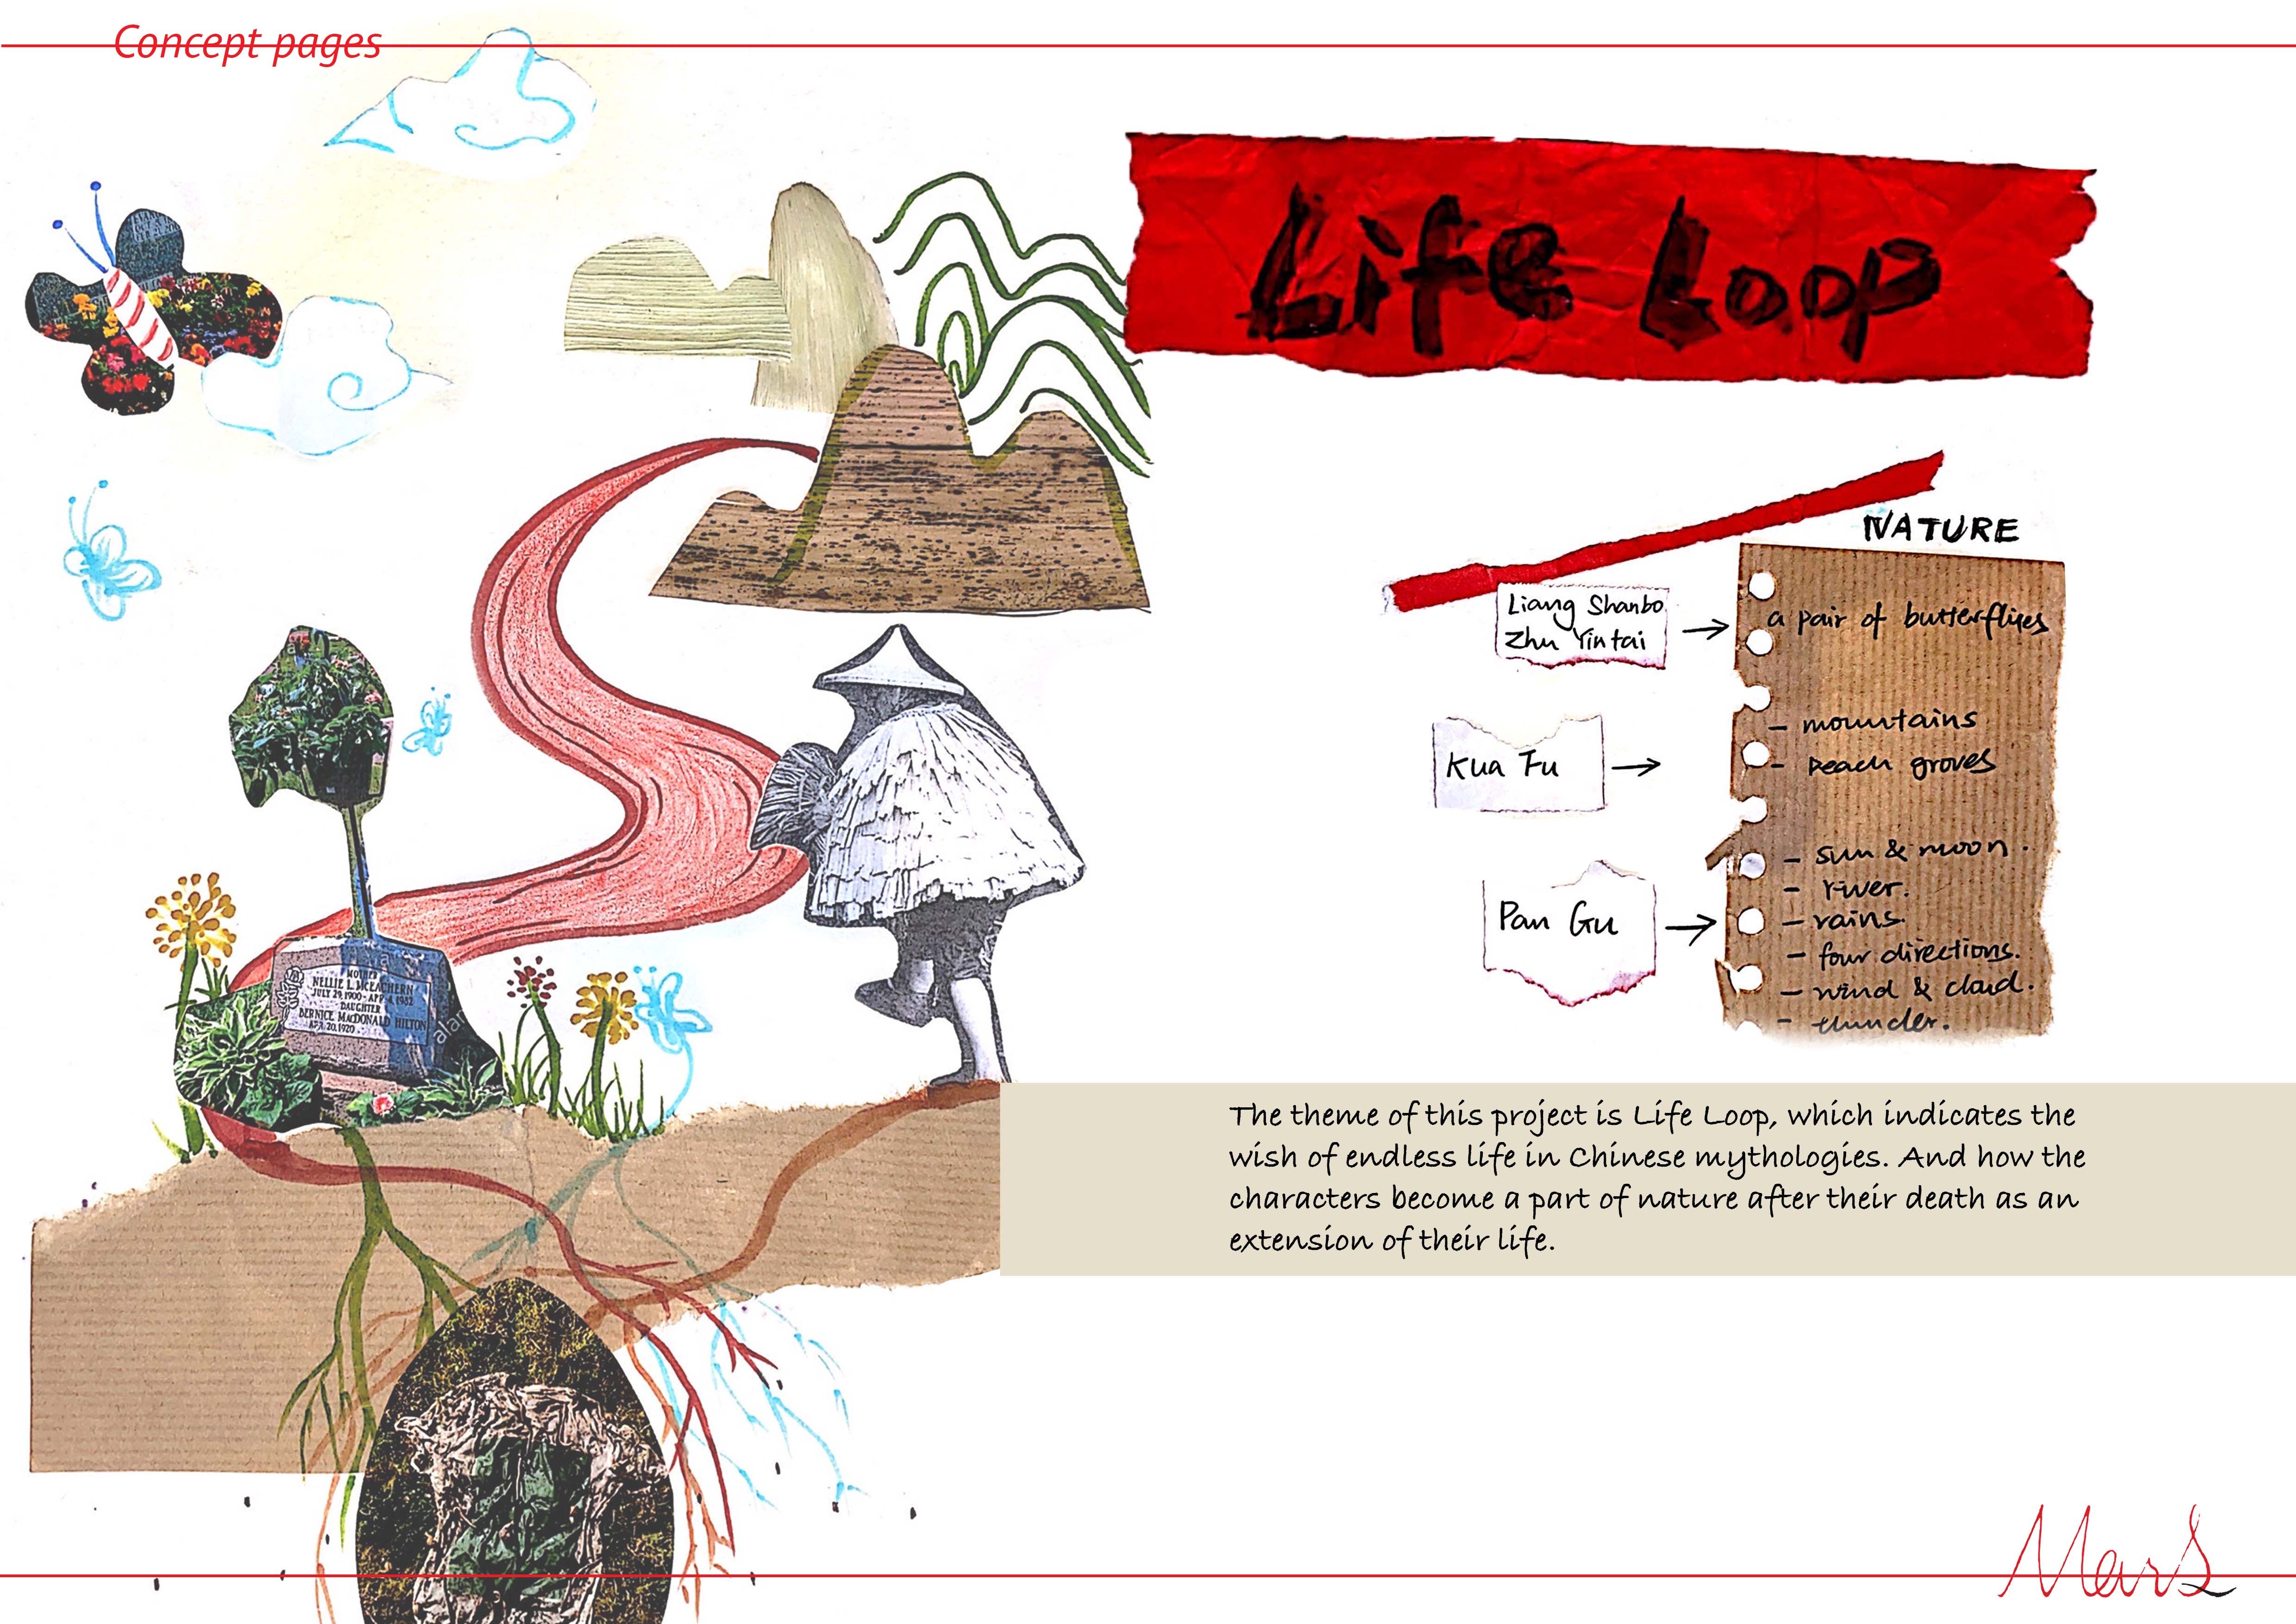 Concept pages
Life Loop
NATURE
Liang Shanbo
Zhu Yintai
a pair of butterflyes
- mountains
- peach groves
Kua Fu
- sun & moon.
- river.
- rains.
- four directions.
- wind & cloud.
- thunder.
Pan Gu
MOTHER
NELLIE L. MCEACHERN
JULY 29, 1900 - APR. 4, 1982
DAUGHTER
BERNICE MACDONALD HILTON
APR. 20, 1920
alam
The theme of this project is Life Loop, which indicates the
wish of endless life in Chinese mythologies. And how the
characters become a part of nature after their death as an
extension of their life.
Mars